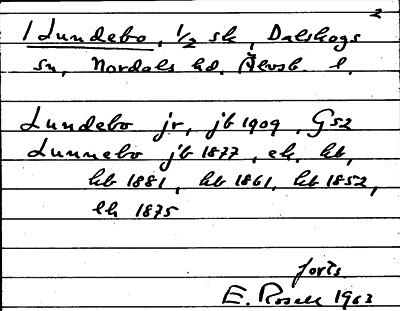 2
1 Lundebo, 1/2 sk, Dalskogs
sn, Nordals hd. Älvsb. l.
Lundebo jr, jb 1909, G52
Lunnebo jb 1877, ek. kb,
kb 1881, kb 1861, kb 1852,
lk 1875
forts.
E. Rosell 1963